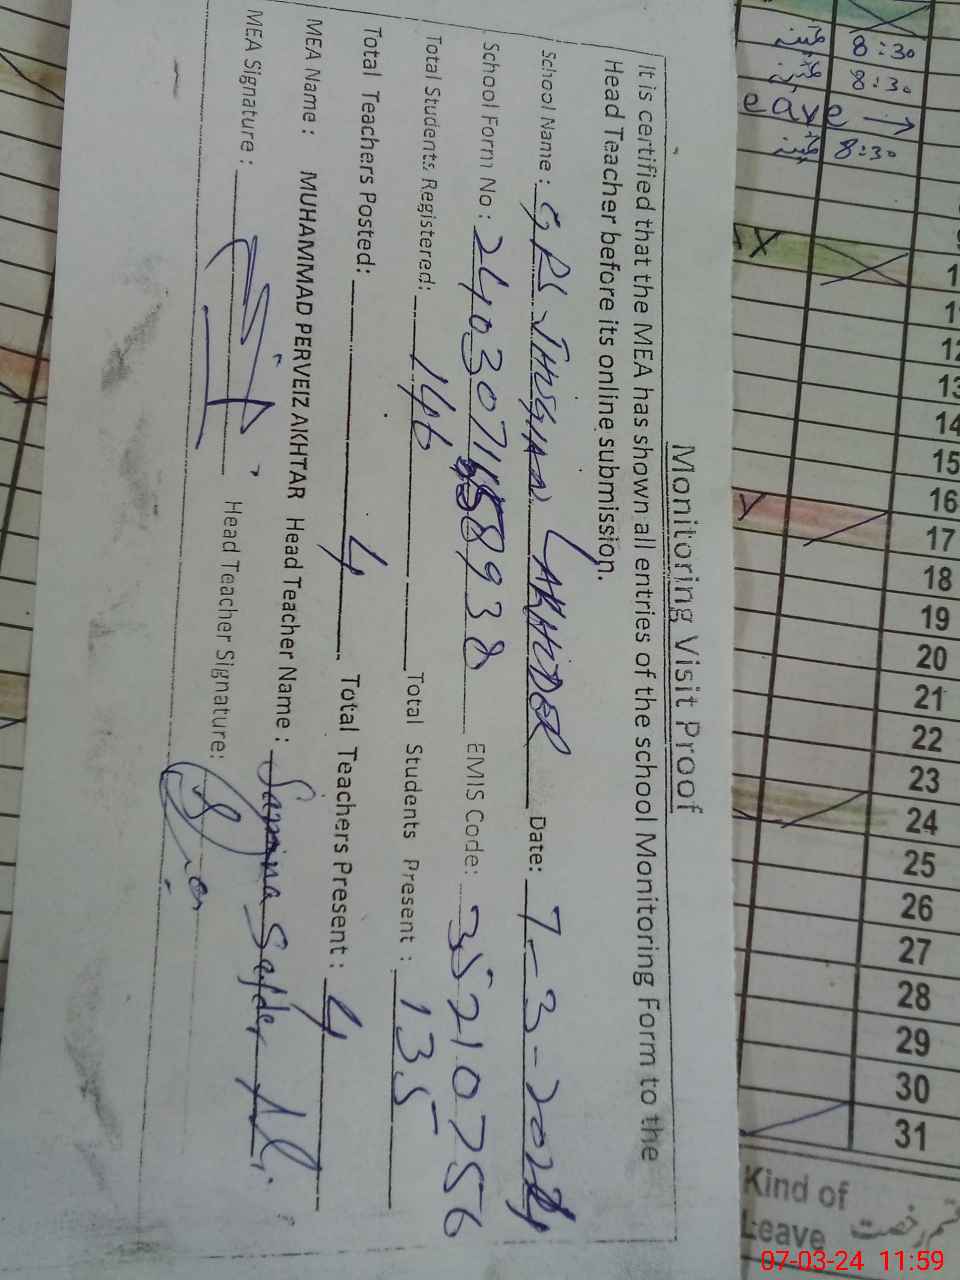 Monitoring Visit Proof
It is certified that the MEA has shown all entries of the school Monitoring Form to the
Head Teacher before its online submission.
School Name : GPS JHUGIAN LAKHDER Date: 7-3-2024
School Form No : EMIS Code: 35210756
Total Students Registered: 146 Total Students Present : 135
Total Teachers Posted: 4 Total Teachers Present : 4
MEA Name : MUHAMMAD PERVEIZ AKHTAR Head Teacher Name : Samina Safder Ali
MEA Signature : Head Teacher Signature:
8:30
8:30
eave →
8:30
16
17
18
19
20
21
22
23
24
25
26
27
28
29
30
31
Kind of
Leave
07-03-24 11:59